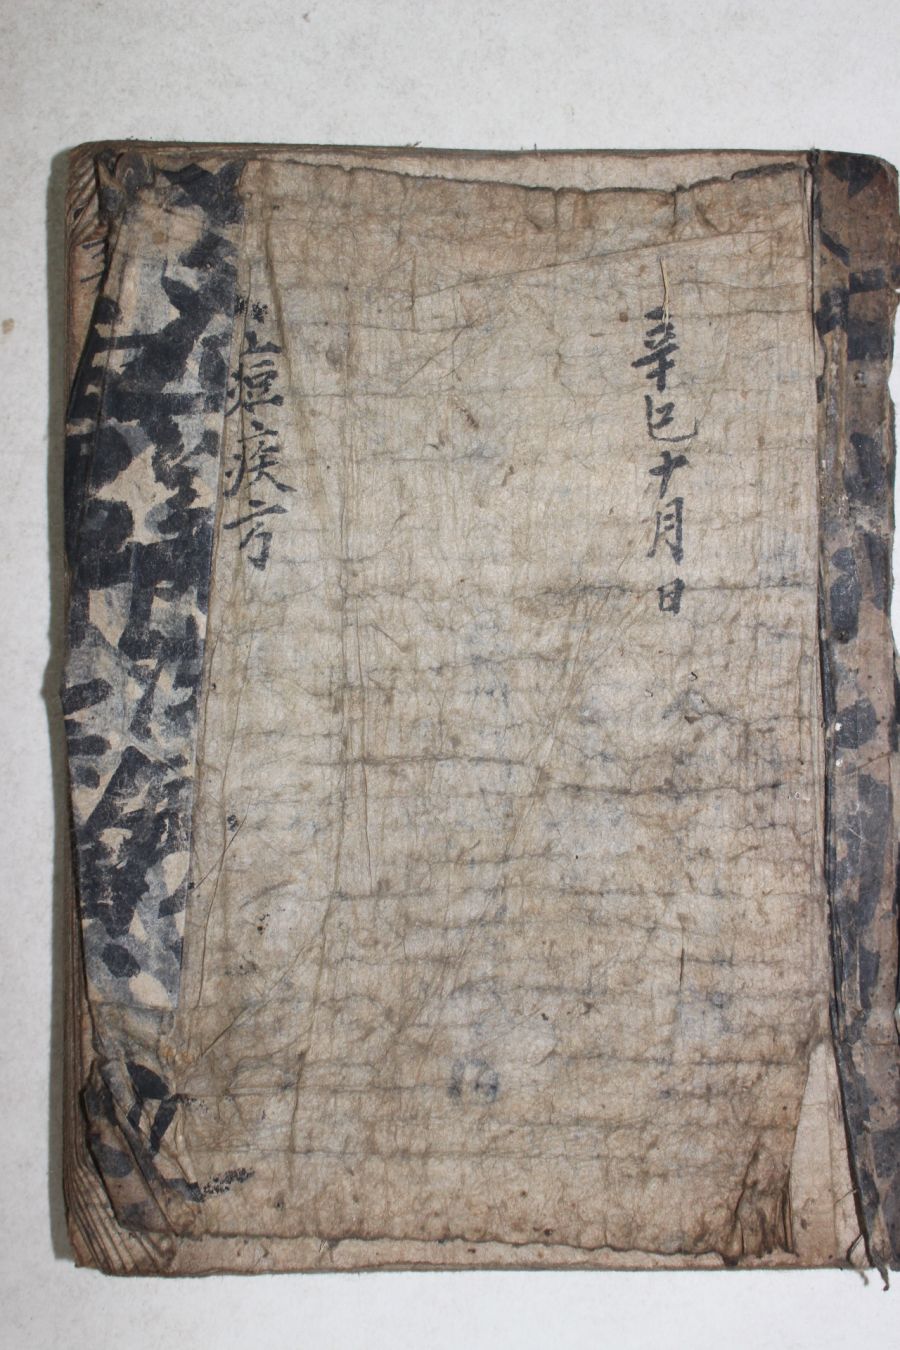 辛巳十月日
痘疾方